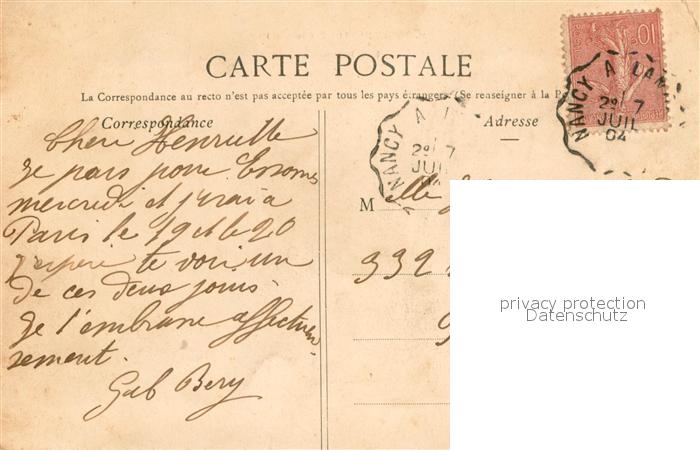 CARTE POSTALE
La Correspondance au recto n'est pas acceptée par tous les pays étrangers (Se renseigner à la P
Correspondance
Adresse
Chere Henriette
je pars pour Essomes
mercredi et j'irai à
Paris le 19 et le 20
j'espere te voir un
de ces deux jours
je t'embrasse affectueu
sement.
Gab Bery
M elle
332
10
NANCY A LAN
2e 7
JUIL
04
NANCY A
2e 7
JUI
privacy protection
Datenschutz